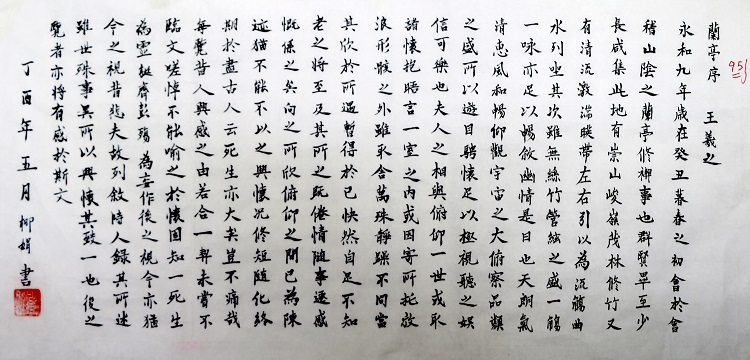 蘭亭序 王羲之
永和九年歲在癸丑暮春之初會於會
稽山陰之蘭亭修禊事也群賢畢至少
長咸集此地有崇山峻嶺茂林修竹又
有清流激湍暎帶左右引以為流觴曲
水列坐其次雖無絲竹管絃之盛一觴
一咏亦足以暢敘幽情是日也天朗氣
清惠風和暢仰觀宇宙之大俯察品類
之盛所以遊目騁懷足以極視聽之娛
信可樂也夫人之相與俯仰一世或取
諸懷抱晤言一室之內或因寄所托放
浪形骸之外雖取舍萬殊靜躁不同當
其欣於所遇暫得於己快然自足不知
老之將至及其所之既倦情隨事遷感
慨係之矣向之所欣俯仰之間已為陳
迹猶不能不以之興懷況修短隨化終
期於盡古人云死生亦大矣豈不痛哉
每覽昔人興感之由若合一契未嘗不
臨文嗟悼不能喻之於懷固知一死生
為虛誕齊彭殤為妄作後之視今亦猶
今之視昔悲夫故列敘時人錄其所述
雖世殊事異所以興懷其致一也後之
覽者亦將有感於斯文
丁酉年五月 柳娟書